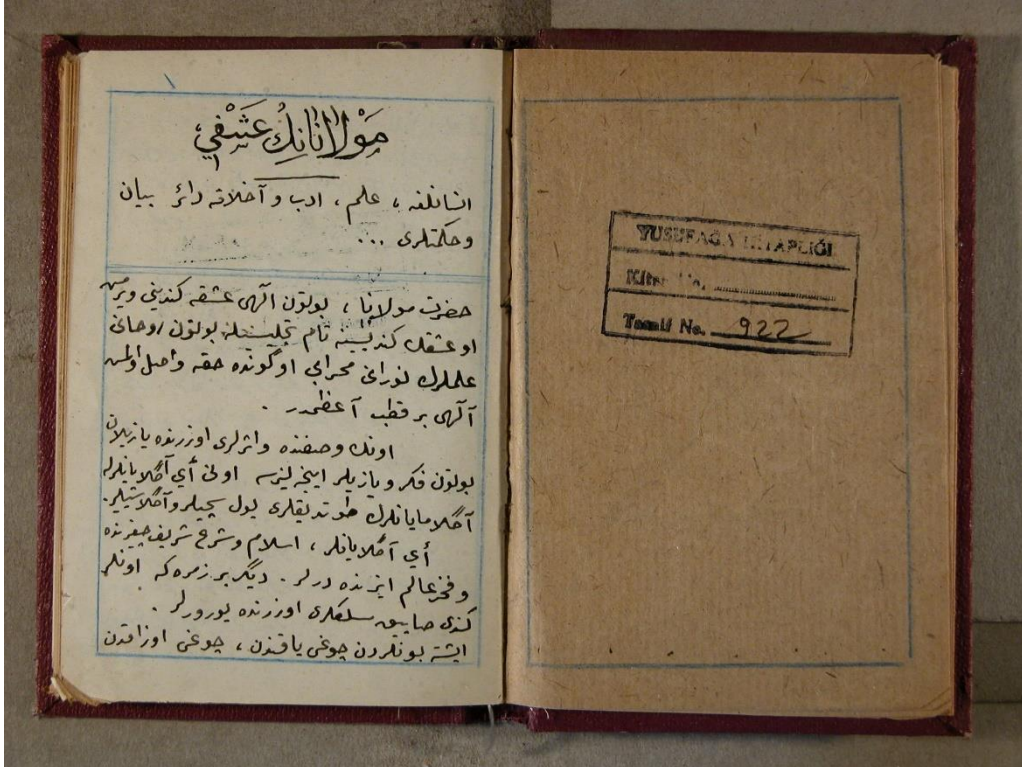 مَوْلانانِڭ عَشْقي
انسانلغه ، علم ، ادب و آخلاقه دائر بيان
و حكمتلرى ...
حضرت مولانا ، بوتون آلهى عشقه كندينى ويرمش
او عشقڭ كنديسينه تام تجليسيله بوتون روحانى
علملرڭ نورانى محرابى اوڭونده حقه واصل اولمش
آلهى بر قطب آعظمدر .
اونڭ وصفنده واثرلرى اوزرنده يازيلان
بوتون فكر و يازيلر اينجه لنيرسه اونى أي آڭلايانلرله
آڭلامايانلرڭ طوتديقلرى يول سچيلر و آڭلاشيلير.
أي آڭلايانلر ، اسلام و شرع شريف چيغرنده
و فخر عالم ايزنده درلر . ديگر بر زمره كه اونلر
كندى صاپيق سلكلرى اوزرنده يورورلر .
ايشته بونلردن چوغى ياقندن ، چوغى اوزاقدن
YUSUFAĞA KİTAPLIĞI
Kitap No.
Tasnif No. 922